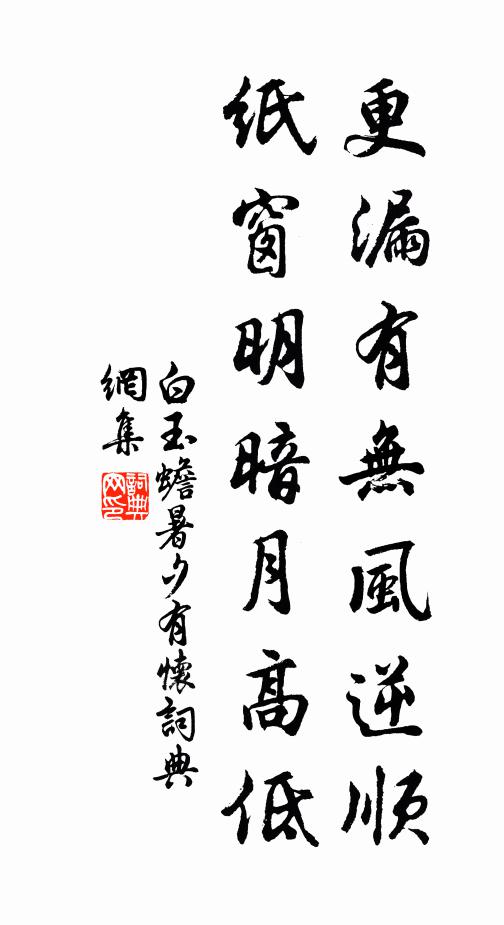 更漏有無風逆順
紙窗明暗月高低
白玉蟾暑夕有懷詞典
網集
詞典網印